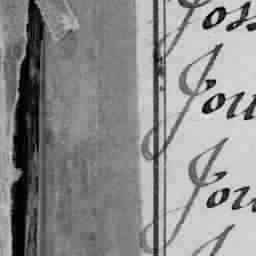 Joss
Jou
Jou
J